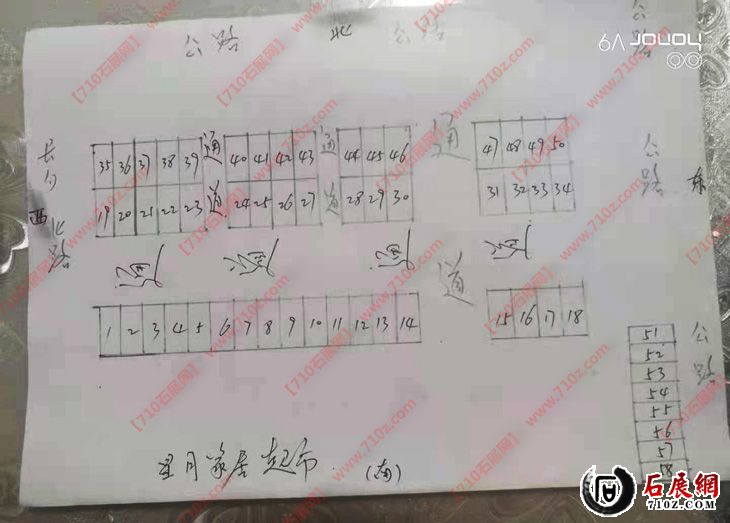 公路 北 公路
公路
honor V9
35 36 37 38 39 通 40 41 42 43 通 44 45 46 通 47 48 49 50
19 20 21 22 23 道 24 25 26 27 道 28 29 30 31 32 33 34
西
北路
公路 东
通 通 通 通
道
1 2 3 4 5 6 7 8 9 10 11 12 13 14 15 16 17 18
公路
51
52
53
54
55
56
57
58
星月家居超市 (南)
【710石展网】 www.710z.com
石展網
710Z.COM